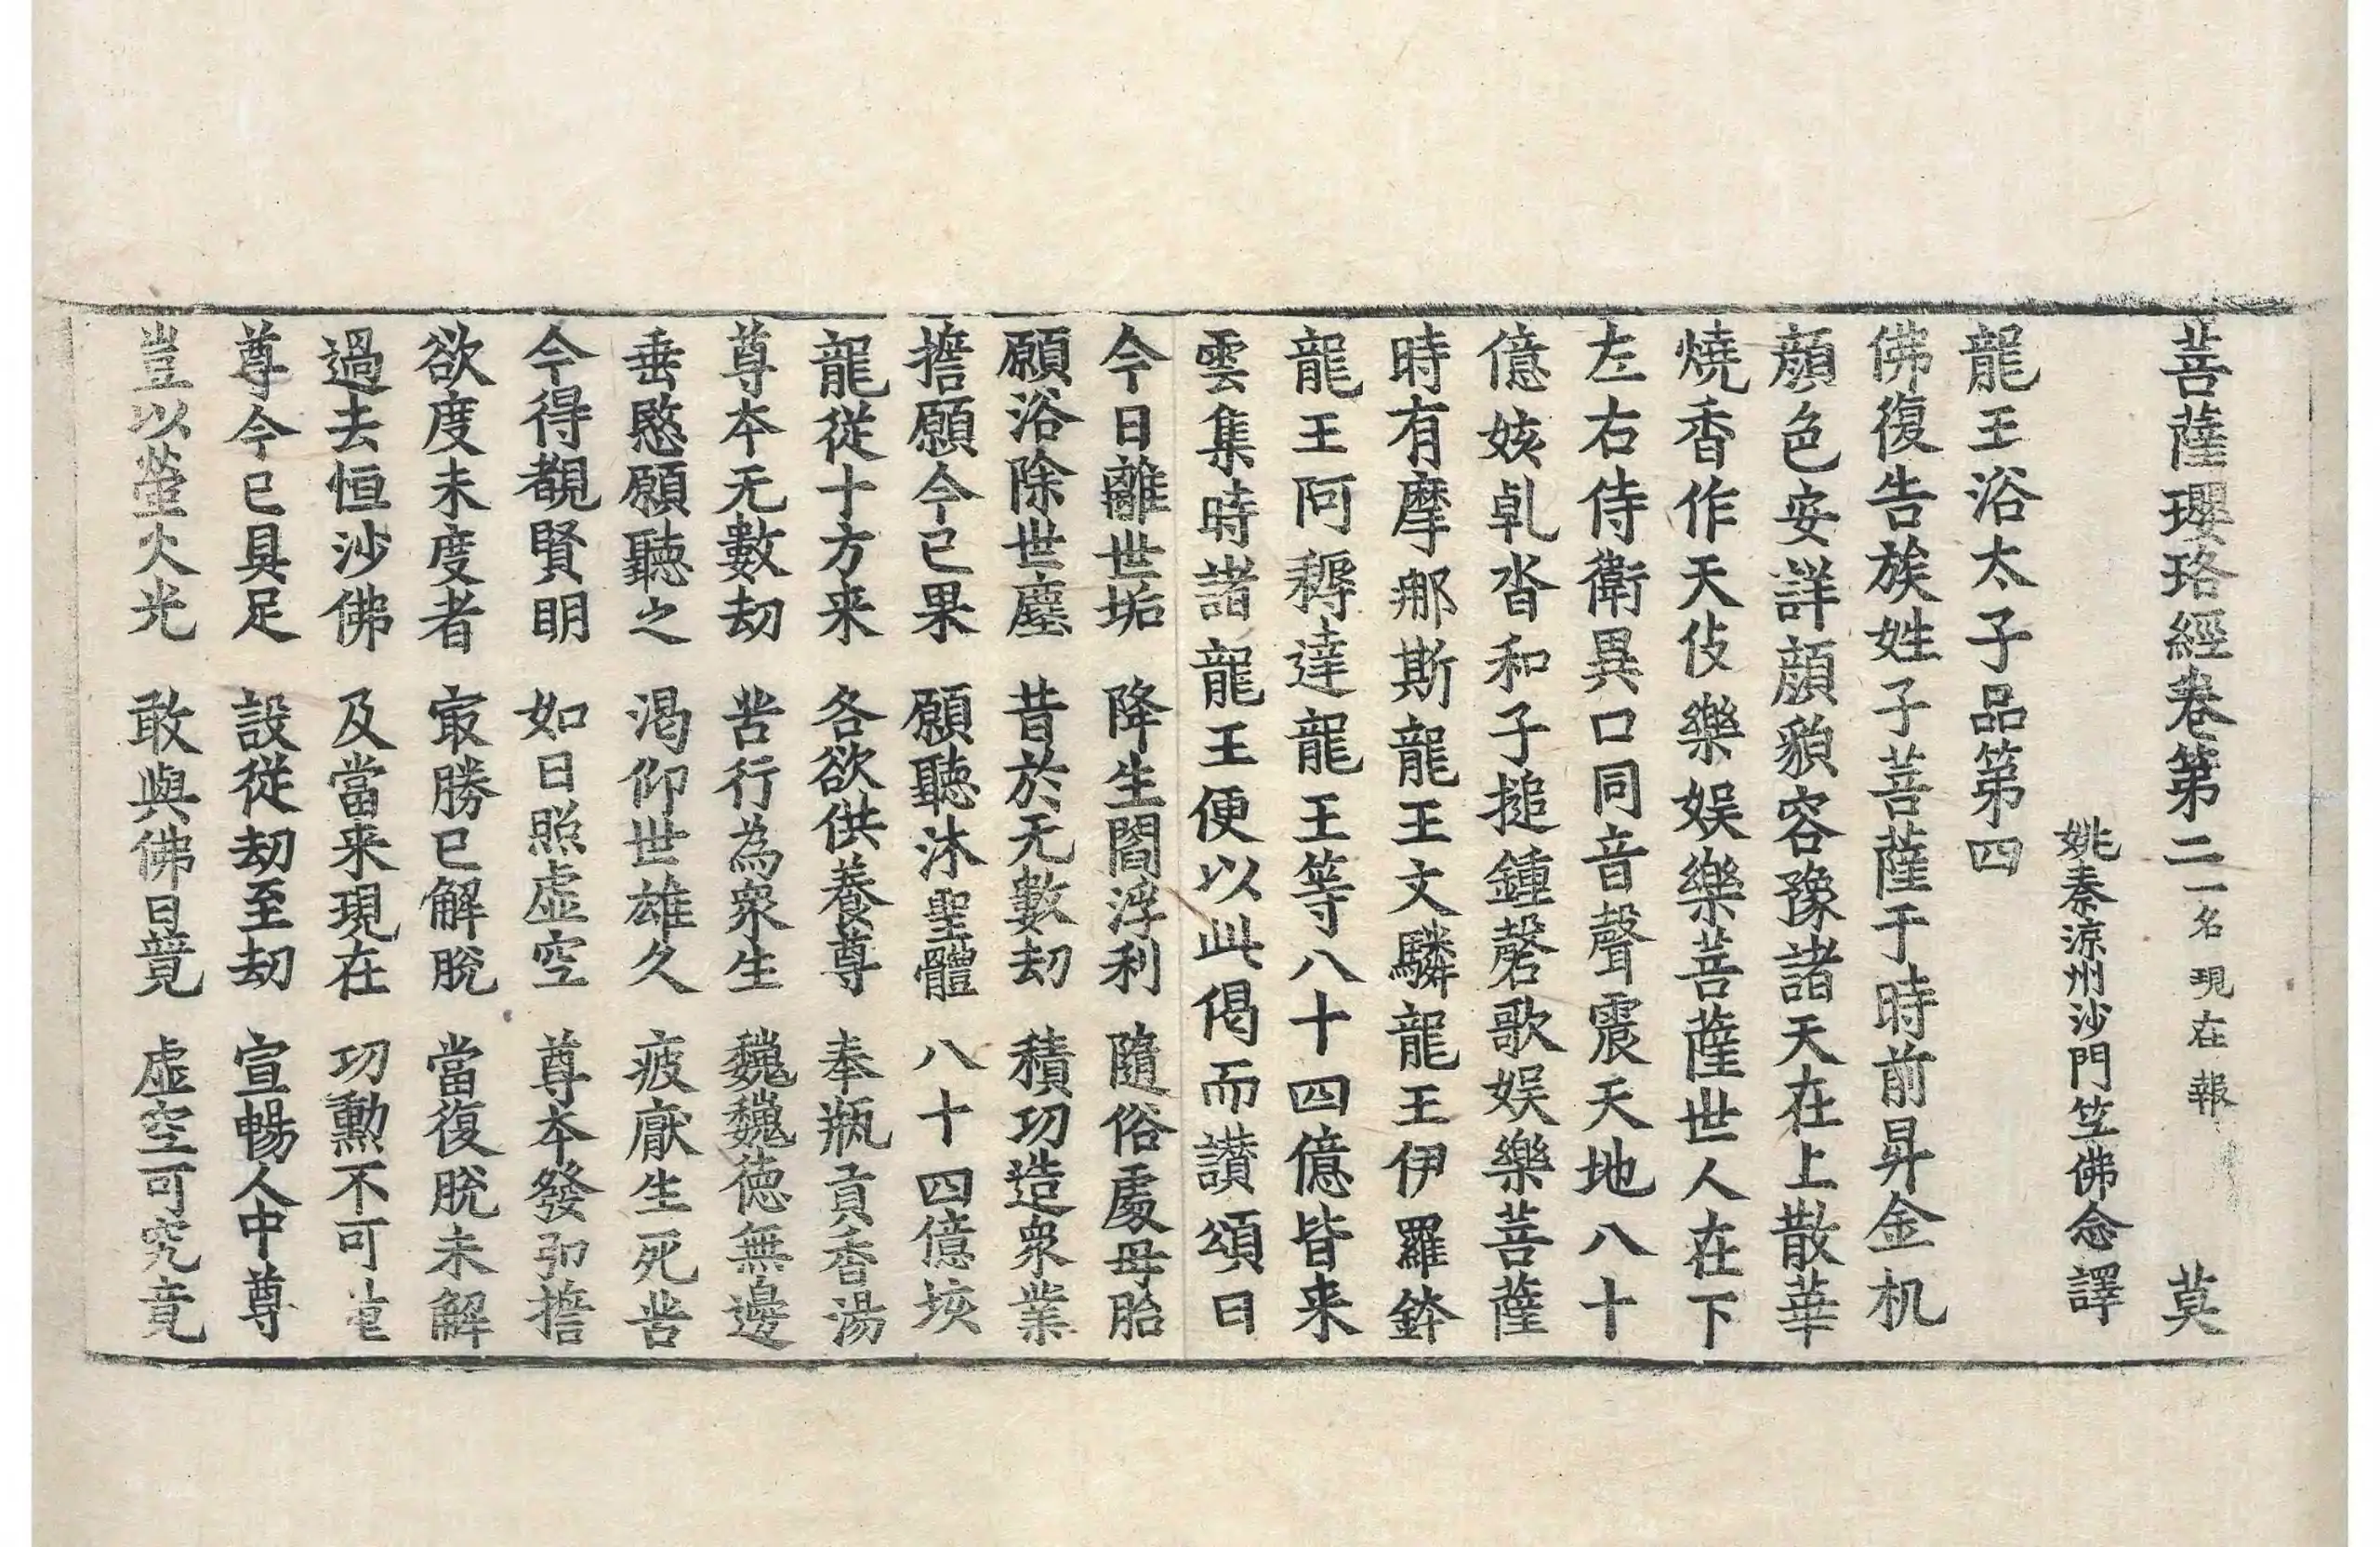 菩薩瓔珞經卷第二一名現在報 莫
姚秦涼州沙門竺佛念譯
龍王浴太子品第四
佛復告族姓子菩薩于時前昇金机
顔色安詳顔貌容豫諸天在上散華
燒香作天伎樂娛樂菩薩世人在下
左右侍衛異口同音聲震天地八十
億姟乹沓和子搥鍾磬歌娛樂菩薩
時有摩那斯龍王文驎龍王伊羅鉢
龍王阿耨達龍王等八十四億皆来
雲集時諸龍王便以此偈而讃頌曰
今日離世垢 降生閻浮利 隨俗處母胎
願浴除世塵 昔於无數劫 積功造衆業
擔願今已果 願聽沐聖體 八十四億垓
龍從十方来 各欲供養尊 奉瓶貢香湯
尊本无數劫 苦行為衆生 巍巍德無邊
垂愍願聽之 渴仰世雄久 疲厭生死苦
今得覩賢明 如日照虛空 尊本發弘擔
欲度未度者 㝡勝已解脫 當復脫未解
過去恒沙佛 及當来現在 功勳不可
尊今已具足 設從劫至劫 宣暢人中尊
豈以螢火光 敢與佛日競 虛空可究竟